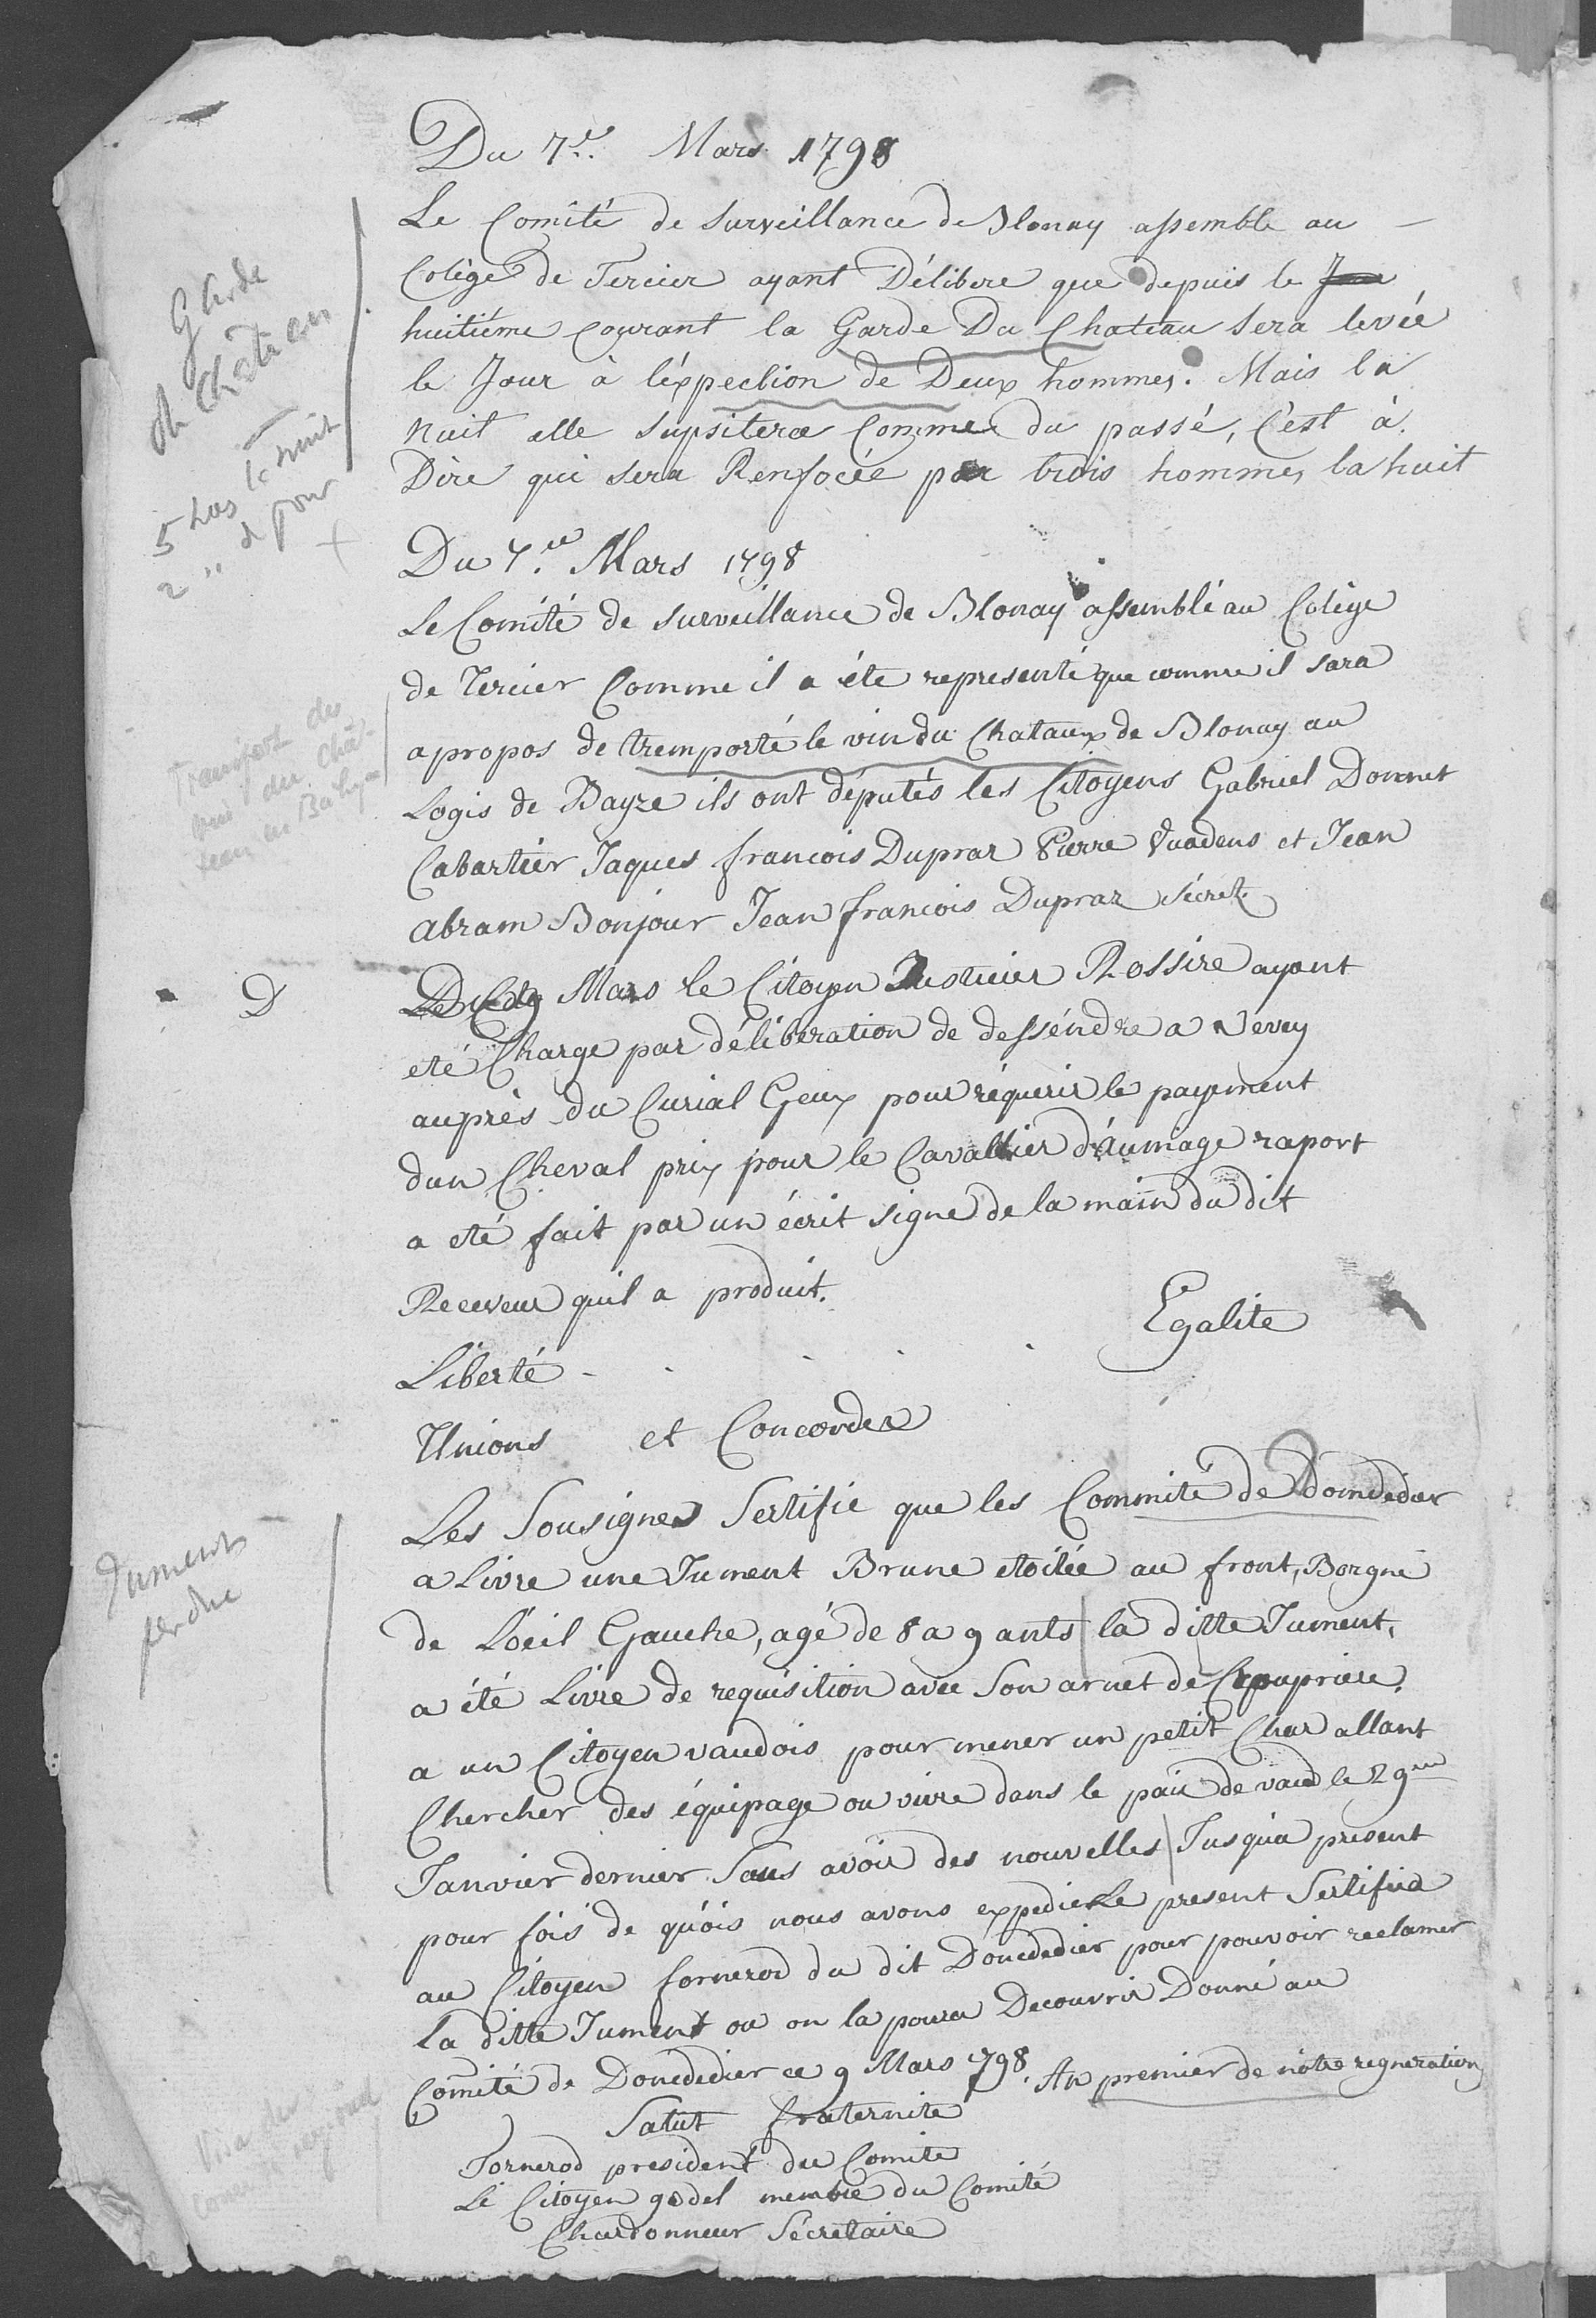 Du 7.e Mars 1798
Le Comité de Surveillance de Blonay assemble au
Colége de Tercier ayant Délibere que depuis le
huitiéme courant la Garde Du Chateau sera levée
le Jour à léxpection de Deux hommes. Mais la
nuit elle supsitera Comme du passé, C'est à
Dire qui sera Renfocée par trois hommes la huit
Garde
du Château
5 hos la nuit
2 " de jour
Du 7.me Mars 1798
Le Comité de surveillance de Blonay assemblé au Colège
de Tercier Comme il a éte representé que comme il sara
apropos de tremporté le vin du Chataux de Blonay au
Logis de Bayze ils ont députés les Citoyens Gabriel Donnet
Cabartier Jaques francois Dupraz Pierre Vuadens et Jean
Abram Bonjour Jean francois Dupraz sécret.
Transport du
vin du Châ-
D
Du Mars le Citoyen Justicier Rossire ayant
eté Charge par déliberation de desséndre a Vevey
auprès du Curial Geux pour réquerir le payement
dun Cheval prix pour le Cavallier d'aumage raport
a eté fait par un écrit signe de la main du dit
Receveur quil a produit.
Liberté - Egalite
Unions et Concorde
Les Sousignes Sertifie que les Commité de Domdedier
a Livre une Jument Brune etoilée au front, Borgne
de L'oéil Gauche, agé de 8 a 9 ants la ditte Jument,
a été Livre de requisition avec Son arnet de Croupriere.
a un Citoyen vaudois pour mener un petit Char allant
Chercher des équipage ou vivre dans le païi de vaud le 29me
Janvier dernier Sans avoir des nouvelles Jusqu'a present
pour fois de qu'óis nous avons expedier Le present Sertifica
au Citoyen fornerod du dit Doncdedier pour pouvoir reclamer
la ditte Jument ou on la poura Decouvrir Donné au
Comité de Doncdedier ce 9 Mars 1798. An premier de notre regneration
Salut fraternité
Fornerod president du Comite
Le Citoyen godel membre du Comité
Chardonneur Sécretaire
Jument
perdue